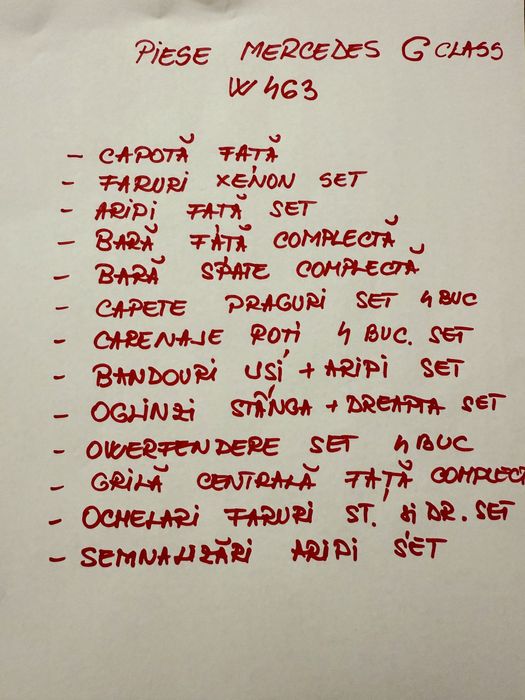 PIESE MERCEDES G CLASS
W463
- CAPOTĂ FAȚĂ
- FARURI XENON SET
- ARIPI FAȚĂ SET
- BARĂ FAȚĂ COMPLECTĂ
- BARĂ SPATE COMPLECTĂ
- CAPETE PRAGURI SET 4 BUC
- CARENAJE ROTI 4 BUC. SET
- BANDOURI USI + ARIPI SET
- OGLINZI STÂNGA + DREAPTA SET
- OWERFENDERE SET 4 BUC
- GRILĂ CENTRALĂ FAȚĂ COMPLECT
- OCHELARI FARURI ST. și DR. SET
- SEMNALIZĂRI ARIPI SET